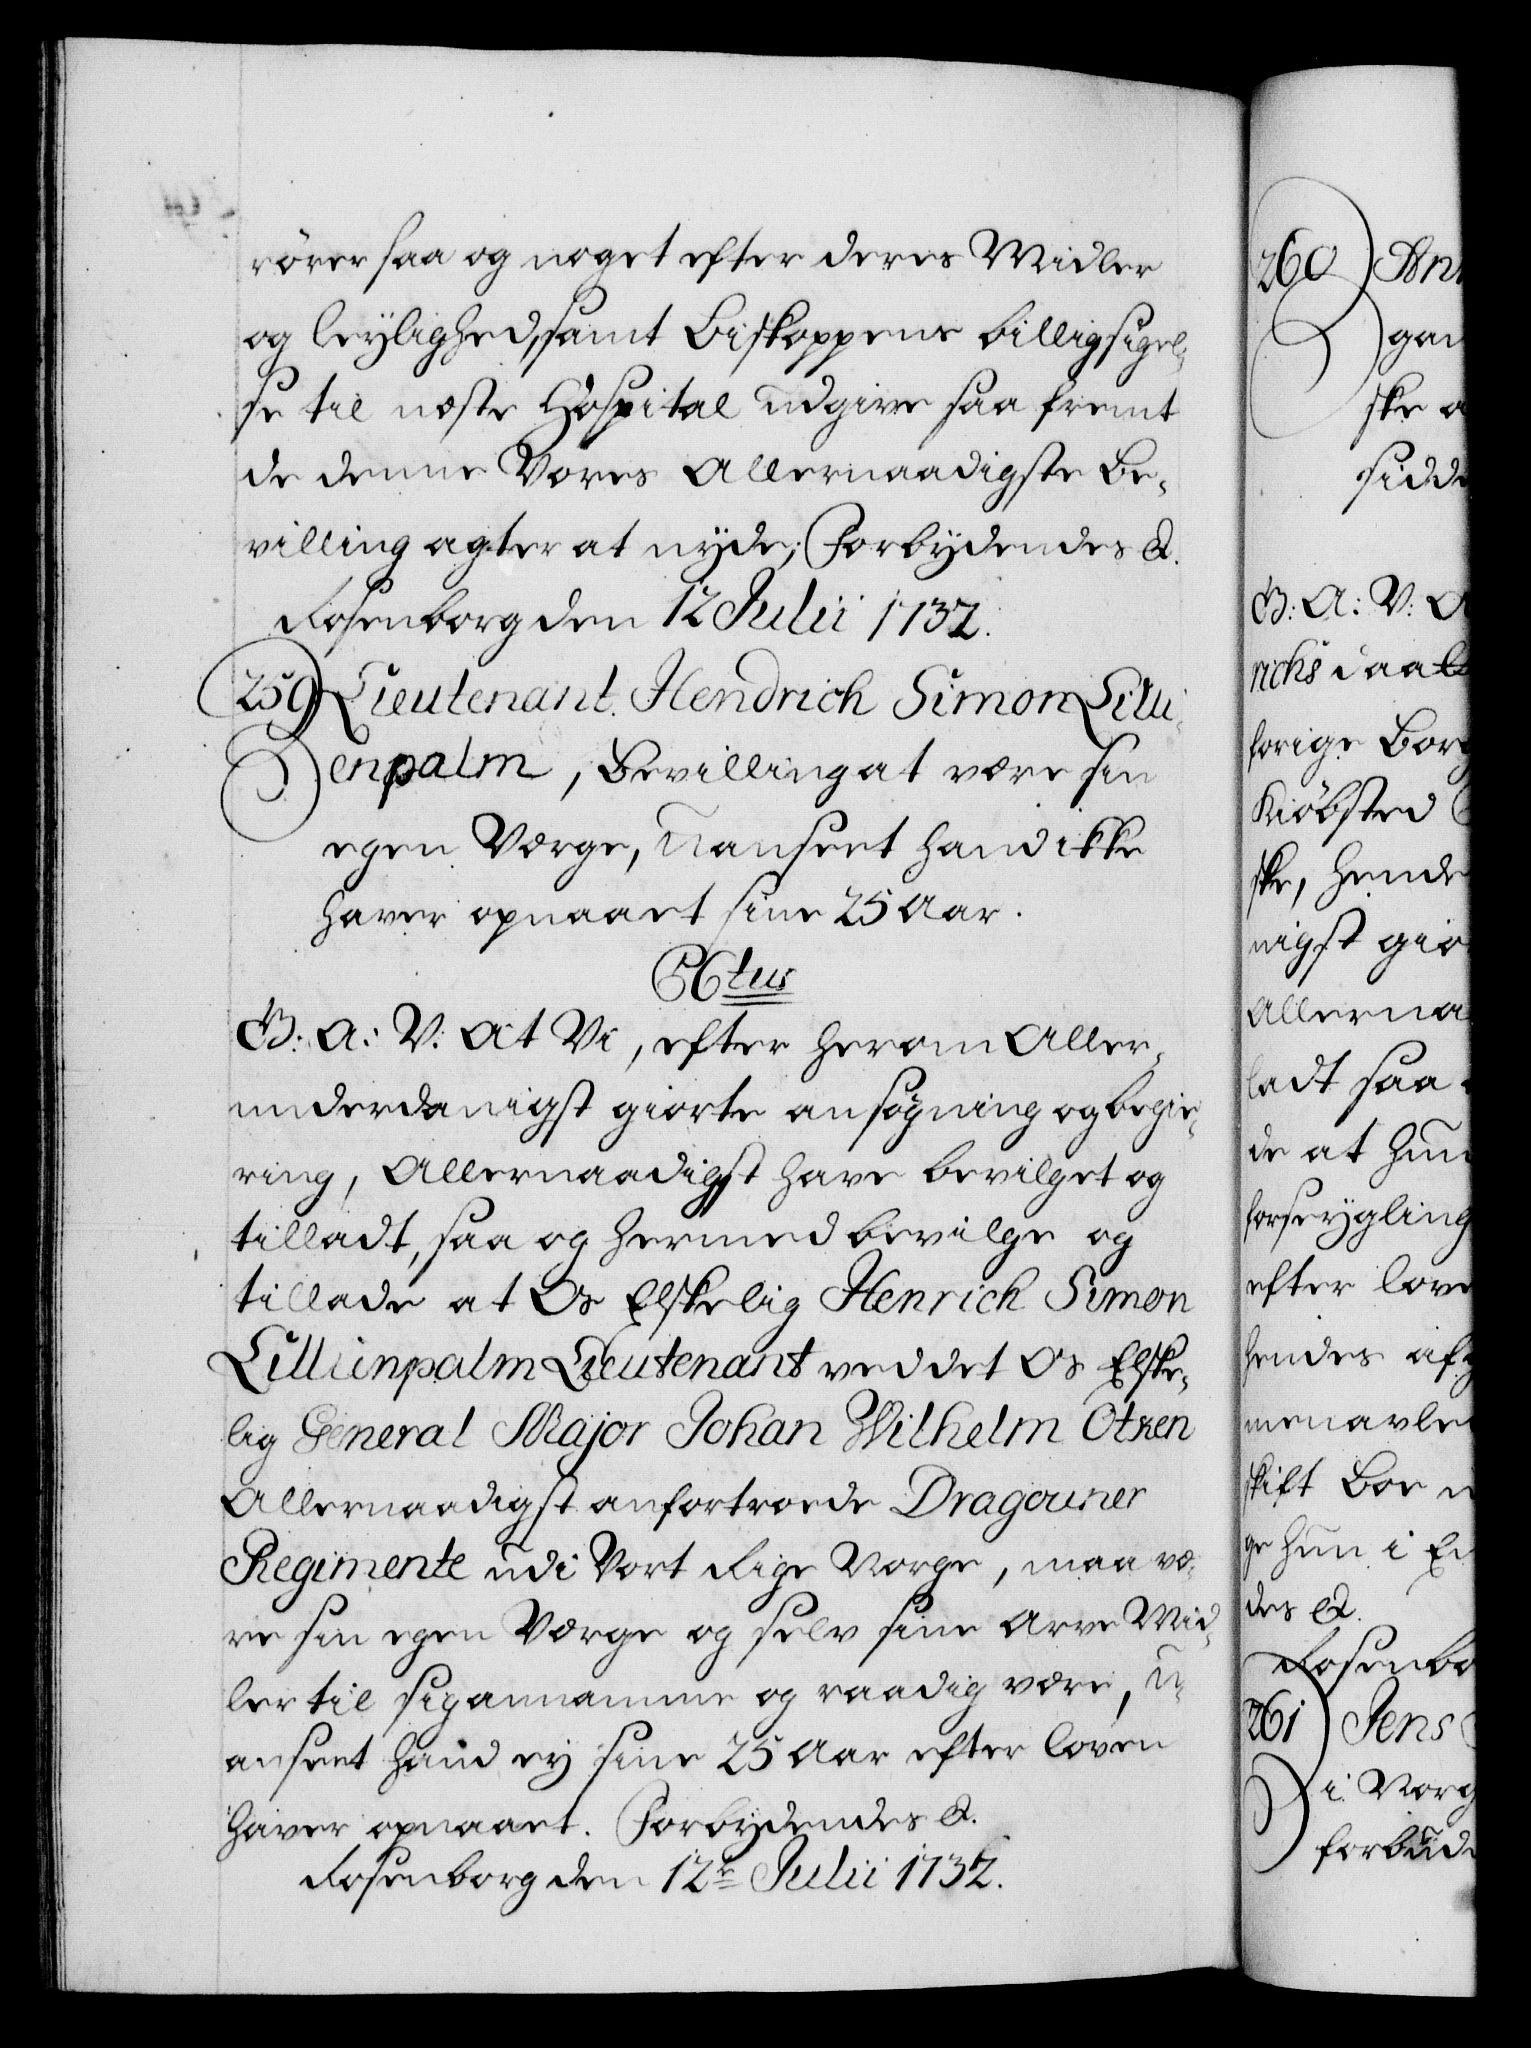 rörer saa og noget efter deres Midler
og leylighed, samt Biskoppens billigsigel-
se til næste Hospital udgive saa fremt
de denne Vores Allernaadigste Be-
villing agter at nyde; Forbydendes &.
Rosenborg den 12 Julii 1732.
259 Lieutenant Hendrich Simon Lilli-
enpalm, Bevilling at være sin
egen Værge, uanseet hand ikke
haver opnaaet sine 25 Aar.
Actus
G: A: V: At Vi, efter herom Aller-
underdanigst giorte ansögning og begie-
ring, Allernaadigst have bevilget og
tilladt, saa og hermed bevilge og
tillade at Os Elskelig Henrich Simon
Lilliinpalm Lieutenant ved det Os Elske-
lig General Major Johan Wilhelm Otken
Allernaadigst anfortroede Dragouner
Regimente udi Vort Rige Norge, maa væ-
re sin egen Værge og selv sine Arve Mid-
ler til sig annamme og raadig være, u-
anseet hand ey sine 25 Aar efter loven
haver opnaaet. Forbydendes &.
Rosenborg den 12te Julii 1732.
260 Ann
gan
ske a
sidde
G: A: V: A
richs daat
forige Borg
Kiöbsted
ske, hende
nigst gio
Allerna
ladt saa
de at hun
forseygling
efter love
hendes afg
menavle
skift Boe
ge hun i
des &.
Rosenbo
261 Jens
i Norg
forbude